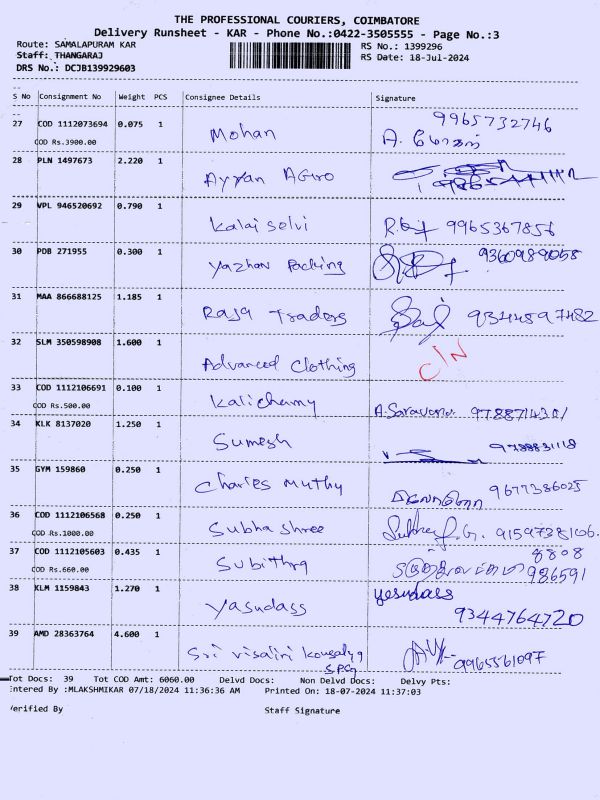 THE PROFESSIONAL COURIERS, COIMBATORE
Delivery Runsheet - KAR - Phone No.:0422-3505555 - Page No.:3
Route: SAMALAPURAM KAR RS No.: 1399296
Staff: THANGARAJ RS Date: 18-Jul-2024
DRS No.: DCJB139929603
S No Consignment No Weight PCS Consignee Details Signature
27 COD 1112073694 0.075 1 Mohan 9965732746
COD Rs.3900.00 A. மோகன்
28 PLN 1497673 2.220 1 Ayyan Agro
29 VPL 946520692 0.790 1 Kalai selvi 9965367856
30 PDB 271955 0.300 1 Yazhan Packing 9360989058
31 MAA 866688125 1.185 1 Raja Traders 9344897482
32 SLM 350598908 1.600 1 Advanced Clothing C/N
33 COD 1112106691 0.100 1 Kalichamy A. Saravana
COD Rs.500.00
34 KLK 8137020 1.250 1 Sumesh 9788831118
35 GYM 159860 0.250 1 Charles Muthy 9677386025
36 COD 1112106568 0.250 1 Subha shree 9159738106
COD Rs.1000.00
37 COD 1112105603 0.435 1 Subithra 8808
COD Rs.660.00 986591
38 KLM 1159843 1.270 1 Yasudass yesudass
9344764720
39 AMD 28363764 4.600 1 Sri visalini kousalya 9965561097
Tot Docs: 39 Tot COD Amt: 6060.00 Delvd Docs: Non Delvd Docs: Delvy Pts:
Entered By :MLAKSHMIKAR 07/18/2024 11:36:36 AM Printed On: 18-07-2024 11:37:03
Verified By Staff Signature